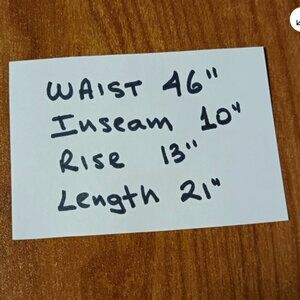 WAIST 46"
Inseam 10"
Rise 13"
Length 21"